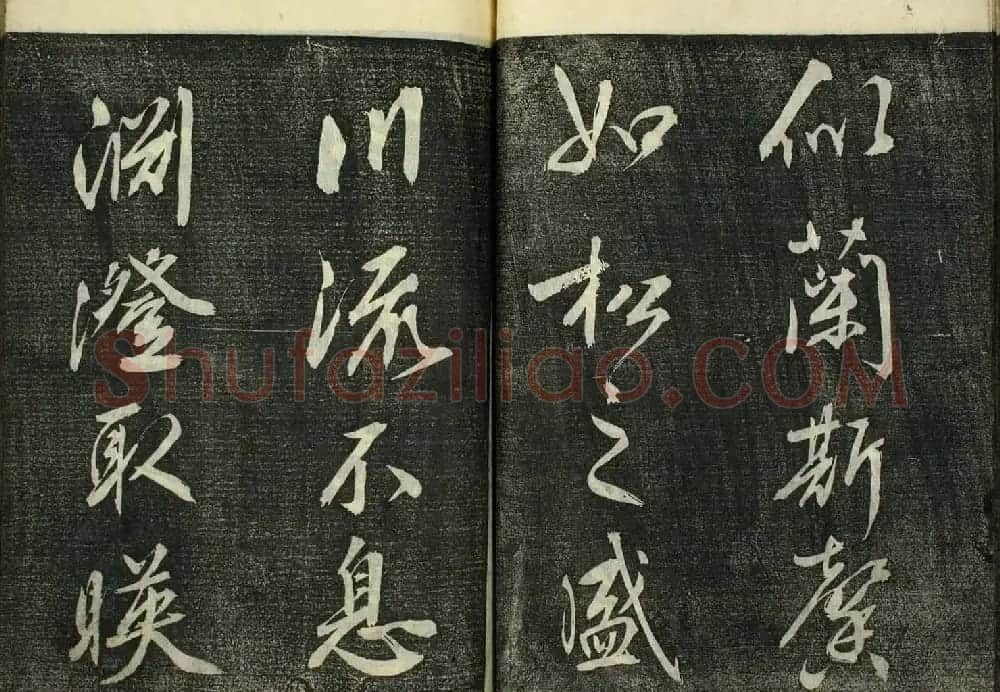 似蘭斯馨
如松之盛
川流不息
渊澄取暎
Shufaziliao.COM